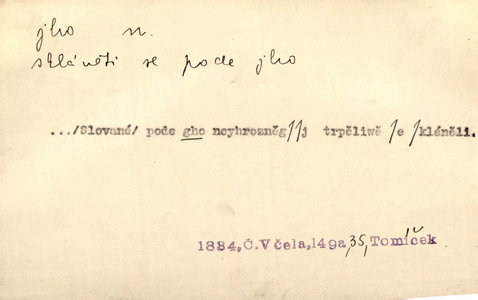 jho n.
skláněti se pode jho
.../Slované/ pode gho neyhrozněg//j trpěliwě /e /kláněli.
1884,Č.Včela,149a,35,Tomíček